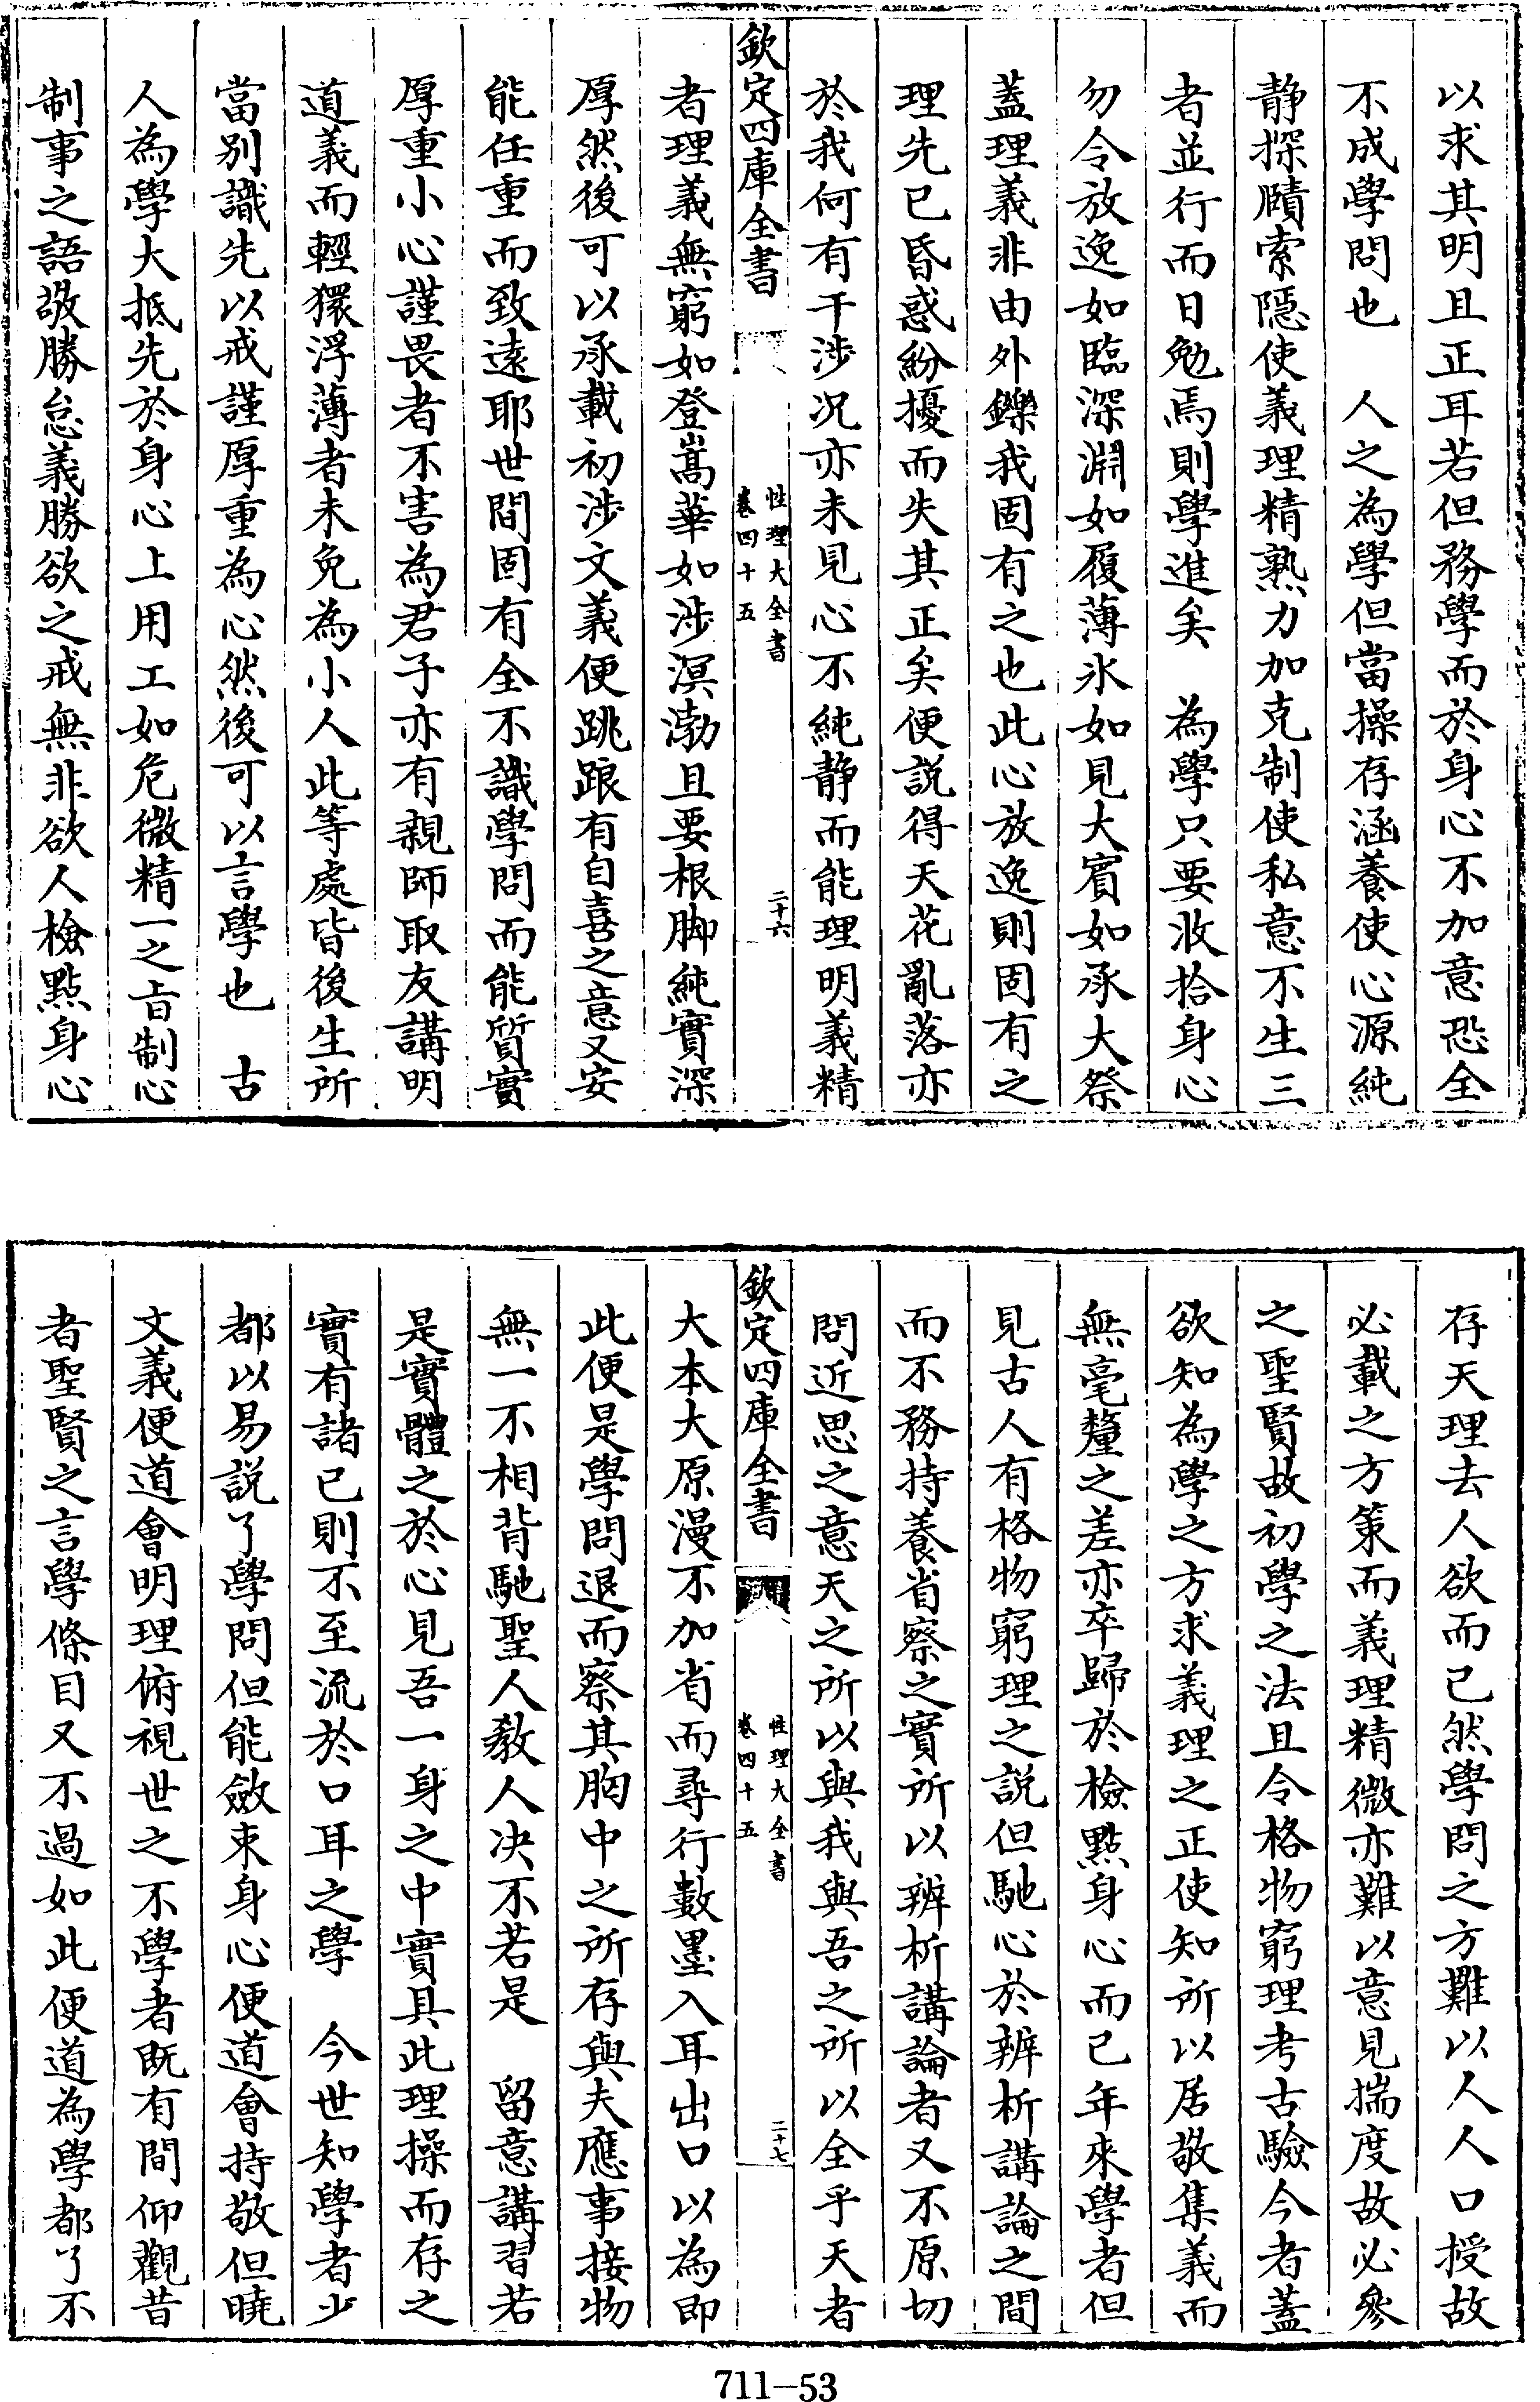 以求其明且正耳若但務學而於身心不加意恐全
不成學問也　人之為學但當操存涵養使心源純
靜探賾索隱使義理精熟力加克制使私意不生三
者並行而日勉焉則學進矣　為學只要收拾身心
勿令放逸如臨深淵如履薄氷如見大賓如承大祭
蓋理義非由外鑠我固有之也此心放逸則固有之
理先已昏惑紛擾而失其正矣便説得天花亂落亦
於我何有干涉况亦未見心不純靜而能理明義精
欽定四庫全書
性理大全書
卷四十五
二十六
者理義無窮如登嵩華如涉溟渤且要根脚純實深
厚然後可以承載初涉文義便跳踉有自喜之意又安
能任重而致遠耶世間固有全不識學問而能質實
厚重小心謹畏者不害為君子亦有親師取友講明
道義而輕獧浮薄者未免為小人此等處皆後生所
當別識先以戒謹厚重為心然後可以言學也　古
人為學大抵先於身心上用工如危微精一之旨制心
制事之語敬勝怠義勝欲之戒無非欲人檢點身心
存天理去人欲而已然學問之方難以人人口授故
必載之方策而義理精微亦難以意見揣度故必參
之聖賢故初學之法且令格物窮理考古驗今者蓋
欲知為學之方求義理之正使知所以居敬集義而
無毫釐之差亦卒歸於檢點身心而已年來學者但
見古人有格物窮理之説但馳心於辨析講論之間
而不務持養省察之實所以辨析講論者又不原切
問近思之意天之所以與我與吾之所以全乎天者
欽定四庫全書
性理大全書
卷四十五
二十七
大本大原漫不加省而尋行數墨入耳出口以為即
此便是學問退而察其胸中之所存與夫應事接物
無一不相背馳聖人教人决不若是　留意講習若
是實體之於心見吾一身之中實具此理操而存之
實有諸已則不至流於口耳之學　今世知學者少
都以易説了學問但能斂束身心便道會持敬但曉
文義便道會明理俯視世之不學者既有間仰觀昔
者聖賢之言學條目又不過如此便道為學都了不
711-53